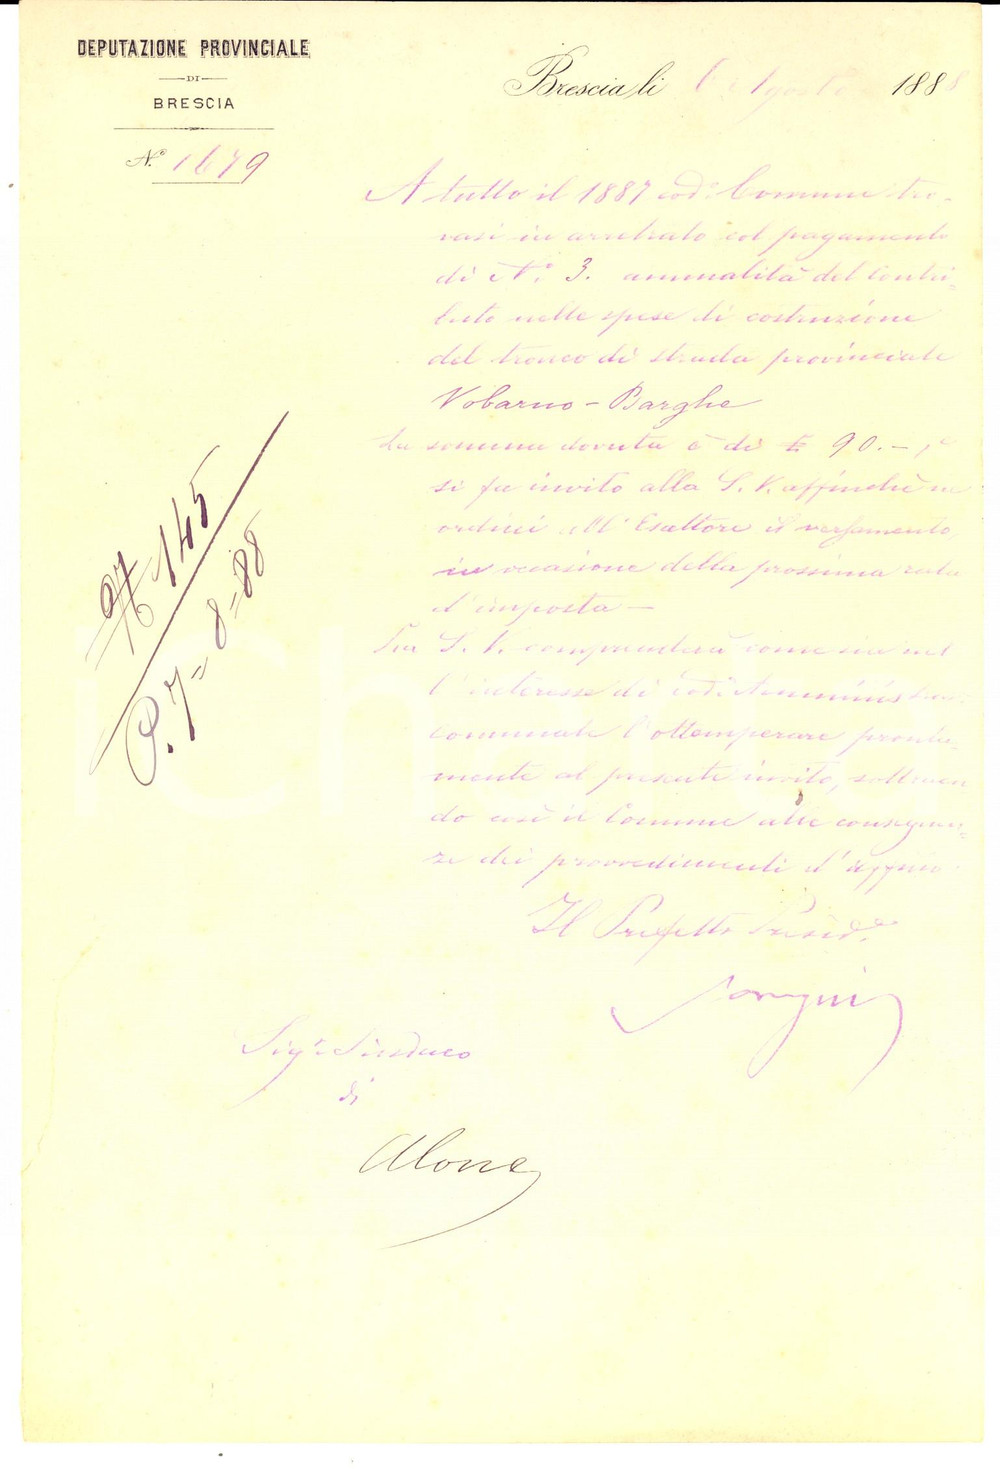 DEPUTAZIONE PROVINCIALE
DI
BRESCIA
N.º 1679
Brescia, li 6 Agosto 1888
A tutto il 1887 cod.º Comune tro-
vasi in arretrato col pagamento
di N.º 3. annualità del contri-
buto nelle spese di costruzione
del tronco di strada provinciale
Vobarno - Barghe
La somma dovuta è di £ 90.-, e
si fa invito alla S. V. affinchè ne
ordini all'Esattore il versamento,
in occasione della prossima rata
d'imposta —
La S. V. comprenderà come sia nel
l'interesse di cod.ª Amminis
comunale l'ottemperare pronta-
mente al presente invito, sottraen
do così il Comune alle conseguen-
ze dei provvedimenti d'uffizio
Il Prefetto Presid.e
Sig.r Sindaco
di
Alone
N 145
P. 7=8=88